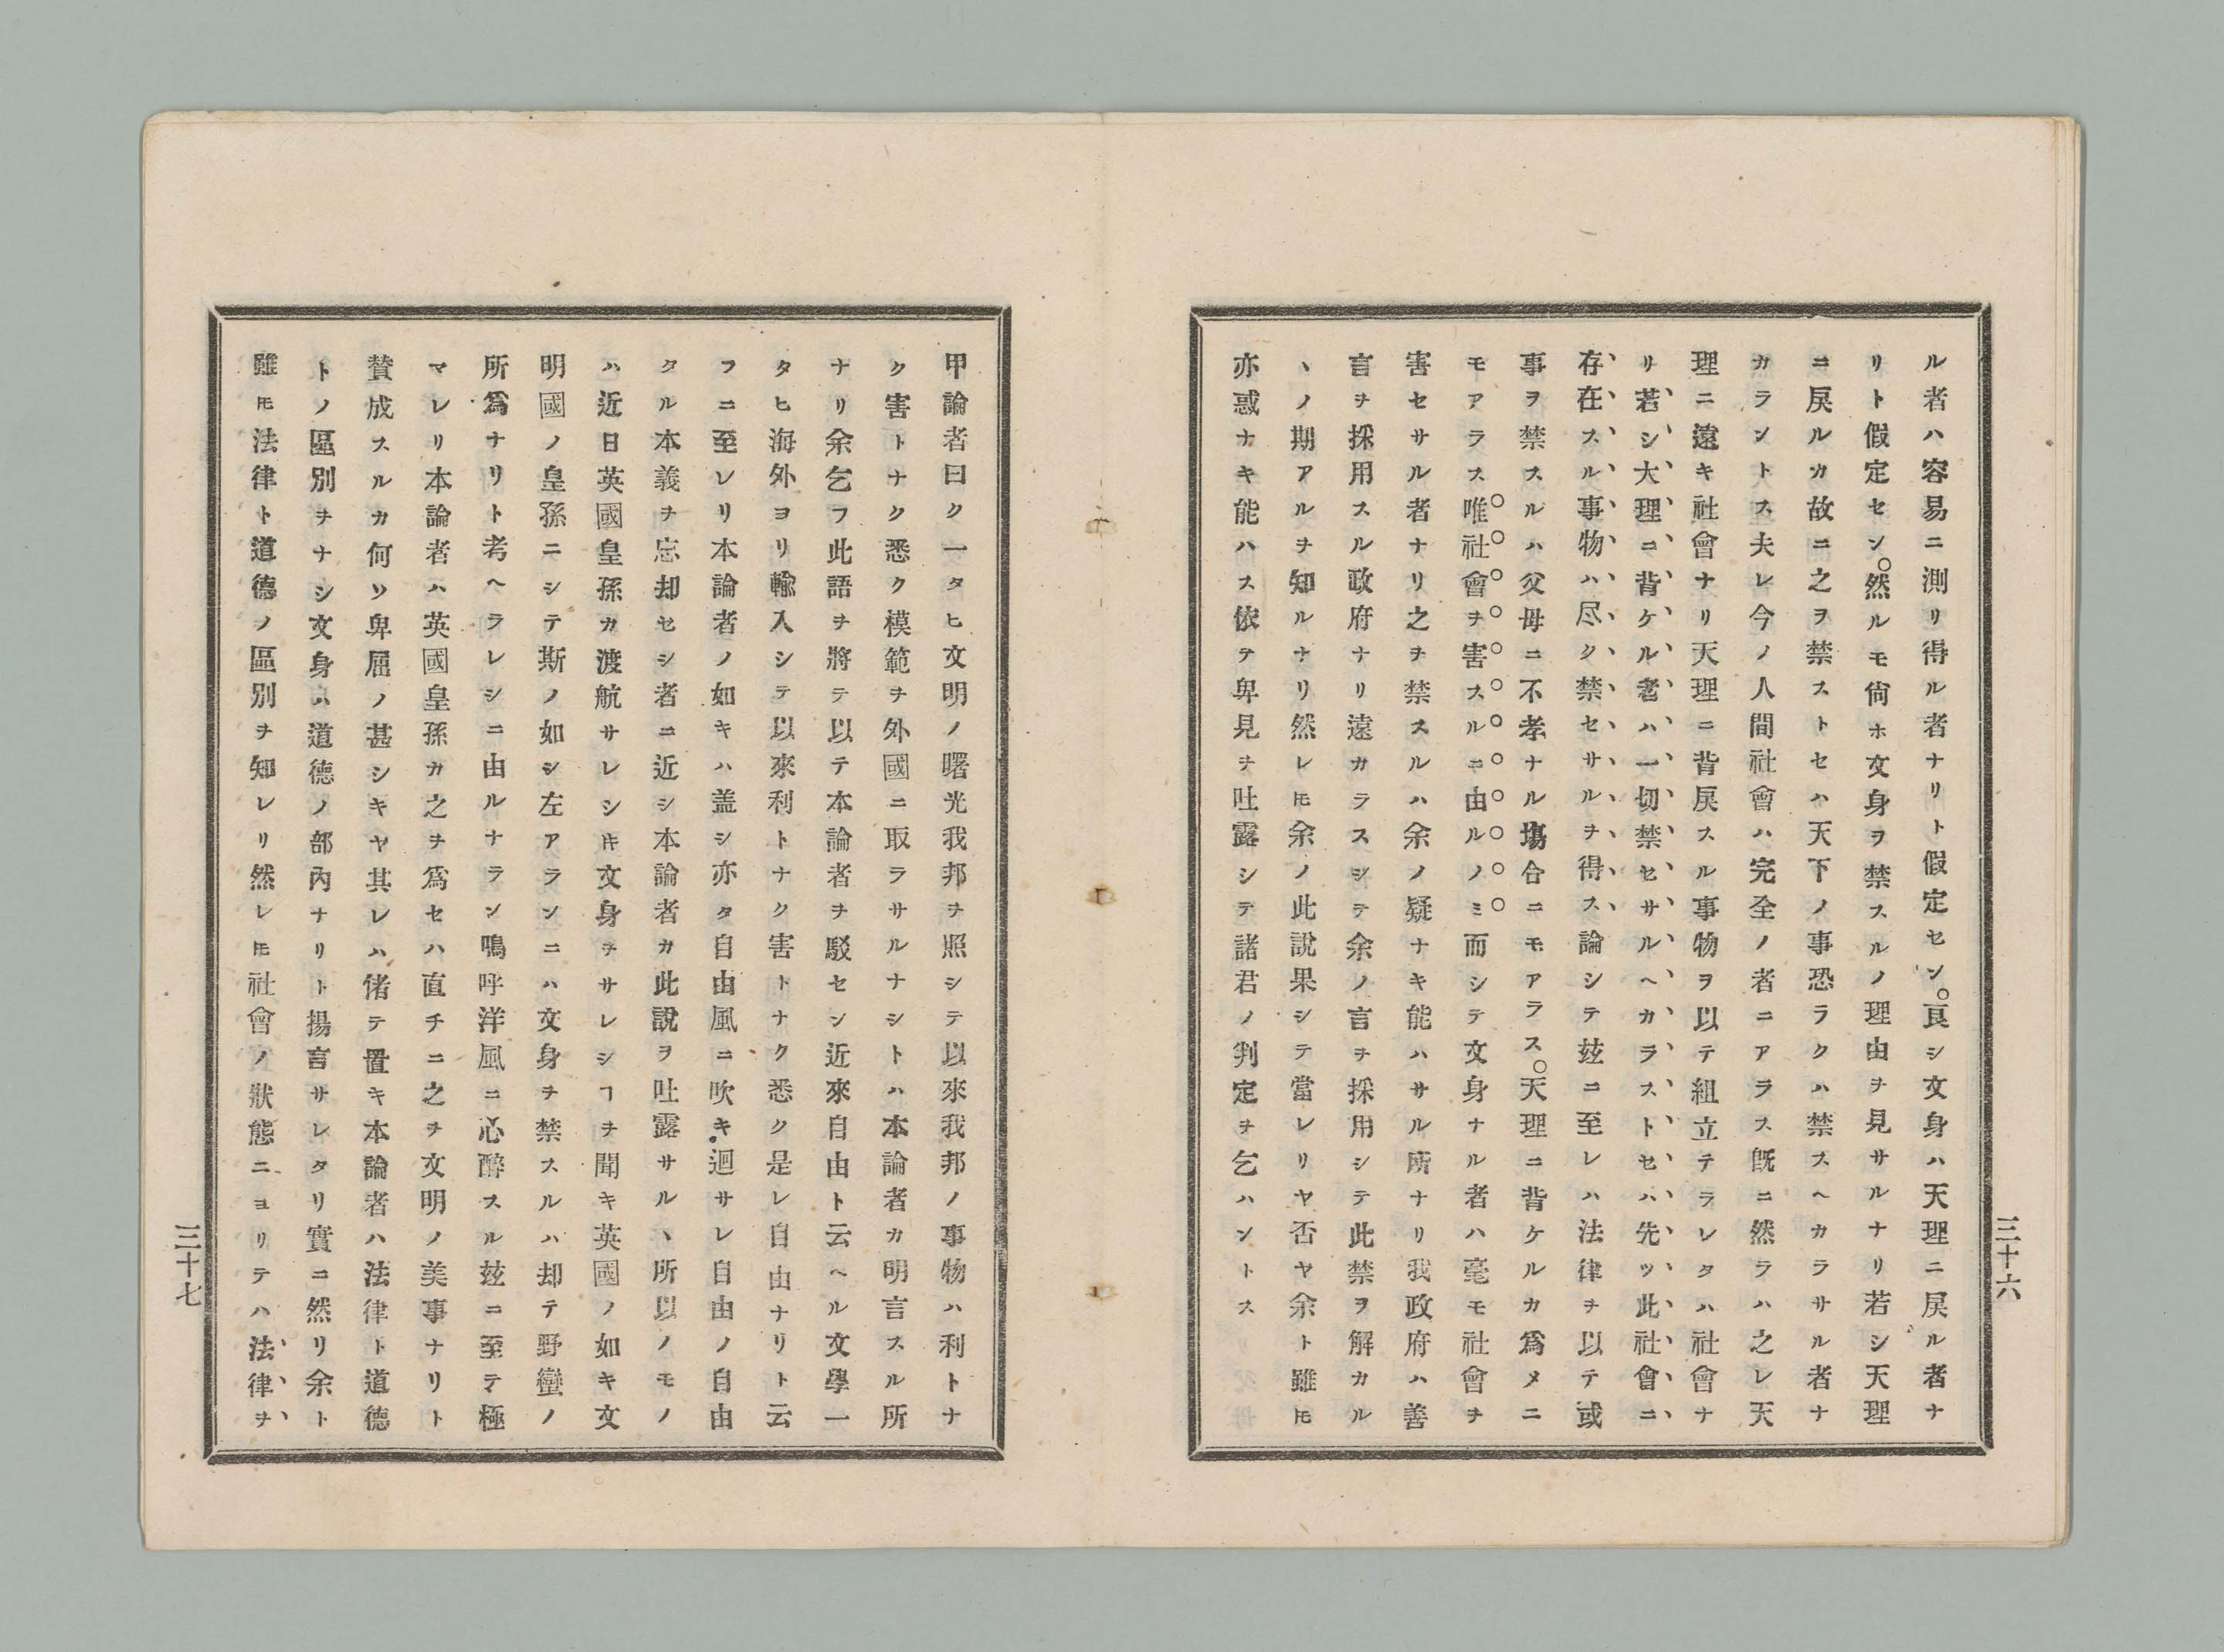 三十六
ル者ハ容易ニ測リ得ル者ナリト假定セン。良シ文身ハ天理ニ戻ル者ナ
リト假定セン。然ルモ尙ホ文身ヲ禁スルノ理由ヲ見サルナリ若シ天理
ニ戻ルカ故ニ之ヲ禁ストセハ天下ノ事恐ラクハ禁スヘカラサル者ナ
カラントス夫レ今ノ人間社會ハ完全ノ者ニアラス既ニ然ラハ之レ天
理ニ遠キ社會ナリ天理ニ背戻スル事物ヲ以テ組立テラレタハ社會ナ
リ若シ大理ニ背ケル者ハ一切禁セサルヘカラストセハ先ツ此社會ニ
存在スル事物ハ尽ク禁セサルヲ得ス論シテ玆ニ至レハ法律ヲ以テ或
事ヲ禁スルハ父母ニ不孝ナル塲合ニモアラス。天理ニ背ケルカ爲メニ
モアラス唯社會ヲ害スルニ由ルノミ而シテ文身ナル者ハ毫モ社會ヲ
害セサル者ナリ之ヲ禁スルハ余ノ疑ナキ能ハサル所ナリ我政府ハ善
言ヲ採用スル政府ナリ遠カラスシテ余ノ言ヲ採用シテ此禁ヲ解カル
ヽノ期アルヲ知ルナリ然レ𪜈余ノ此說果シテ當レリヤ否ヤ余ト雖𪜈
亦惑ナキ能ハス依テ卑見ヲ吐露シテ諸君ノ判定ヲ乞ハントス
甲論者曰ク一タヒ文明ノ曙光我邦ヲ照シテ以來我邦ノ事物ハ利トナ
ク害トナク悉ク模範ヲ外國ニ取ラサルナシトハ本論者カ明言スル所
ナリ余乞フ此語ヲ將テ以テ本論者ヲ駁セン近來自由ト云ヘル文學一
タヒ海外ヨリ輸入シテ以來利トナク害トナク悉ク是レ自由ナリト云
フニ至レリ本論者ノ如キハ盖シ亦タ自由風ニ吹キ迴サレ自由ノ自由
タル本義ヲ忘却セシ者ニ近シ本論者カ此說ヲ吐露サルヽ所以ノモノ
ハ近日英國皇孫カ渡航サレシ𪜈文身ヲサレシヿヲ聞キ英國ノ如キ文
明國ノ皇孫ニシテ斯ノ如シ左アランニハ文身ヲ禁スルハ却テ野蠻ノ
所爲ナリト考ヘラレシニ由ルナラン嗚呼洋風ニ心醉スル玆ニ至テ極
マレリ本論者ハ英國皇孫カ之ヲ爲セハ直チニ之ヲ文明ノ美事ナリト
賛成スルカ何ソ卑屈ノ甚シキヤ其レハ偖テ置キ本論者ハ法律ト道德
トノ區別ヲナシ文身ハ道德ノ部內ナリト揚言サレタリ實ニ然リ余ト
雖𪜈法律ト道德ノ區別ヲ知レリ然レ𪜈社會ノ狀態ニヨリテハ法律ヲ
三十七